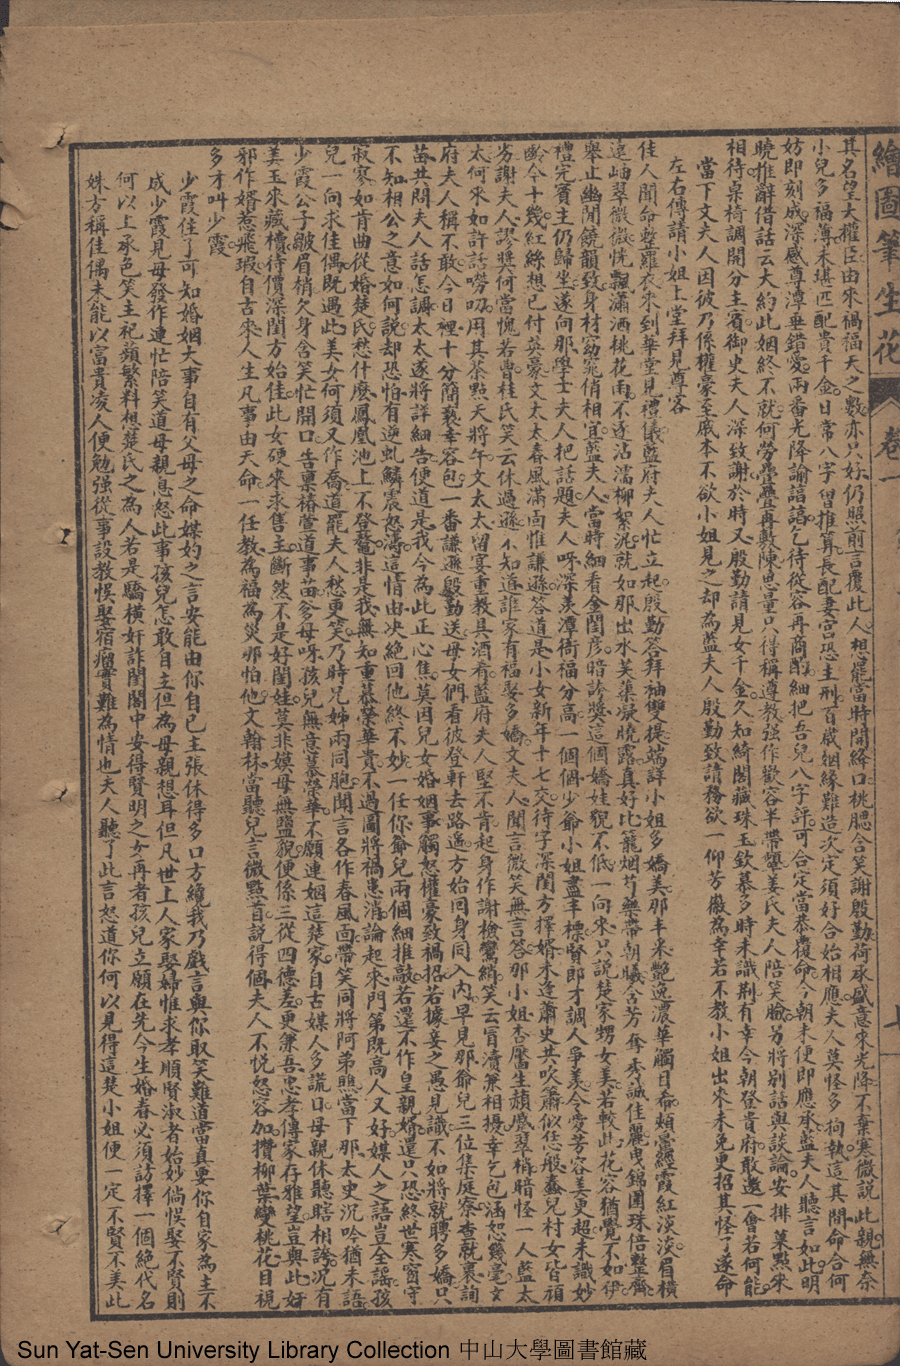 繪圖筆生花 卷一 七
其名望大權臣由來禍福天之數亦只好仍照前言覆此人想罷當時開絳口桃腮含笑謝殷勤荷承盛意來光降不棄寒微説此親無奈
小兒多福薄未堪匹配貴千金日常八字曾推算長配妻宮恐主刑百歲姻緣難造次定須好合始相應夫人莫怪多拘執這其間命合何
妨即刻成深感尊潭垂錯愛兩番光降諭諳諳乞待從容再商酌細把吾兒八字評可合定當恭覆命今朝未便即應承藍夫人聽言如此明
曉推辭借話云大約此姻終不就何勞疊疊再敷陳思量只得稱遵教強作歡容半帶顰姜氏夫人陪笑臉另將別話與談論安排菓點來
相待桌椅調開分主賓御史夫人深致謝於時又殷勤請見女千金久知綺閣藏珠玉欽慕多時未識荆有幸今朝登貴府敢邀一會若何能
當下文夫人因彼乃係權豪至戚本不欲小姐見之却為藍夫人殷勤致請務欲一仰芳徽為幸若不教小姐出來未免更招其怪了遂命
左右傳請小姐上堂拜見尊客
佳人聞命整羅衣來到華堂見禮儀藍府夫人忙立起殷勤答拜袖雙提端詳小姐多嬌美那丰采艷逸濃華觸目希頰暈經霞紅淡淡眉橫
遠岫翠微微恍飄瀟洒桃花雨不逐沾濡柳絮泥就如那出水芙蕖凝曉露真好比籠烟芍藥帶朝曦含芳奪秀誠佳麗曳錦圍珠倍整齊
舉止幽閒饒韻致身材窈窕俏相宜藍夫人當時細看金閨彥暗誇獎這個嬌娃貌不低一向來只說楚家甥女美若較此花容猶覺不如伊
禮完賓主仍歸坐遂向那學士夫人把話題夫人呀深羨潭衙福分高一個個少爺小姐盡丰標賢郎才調人爭羨令愛芳容美更超未識妙
齡今十幾紅絲想已付英豪文太太春風滿面惟謙遜答道是小女新年十七交待字深閨方擇婿未逢蕭史共吹簫似恁般蠢兒村女皆頑
劣謝夫人謬獎何當愧若曹桂氏笑云休過遜不知道誰家有福娶多嬌文夫人聞言微笑無言答那小姐杏靨生赬感翠梢暗怪一人藍太
太何來如許話嘮叨用其茶點天將午文太太留宴重教具酒肴藍府夫人堅不肯起身作謝檢鸞綃笑云冒瀆兼相擾幸乞包涵恕幾文
府夫人稱不敢今日裡十分簡褻幸容包一番謙遜殷勤送母女們看彼登軒去路遙方始回身同入內早見那爺兒三位集庭寮查就裏詢
苗共問夫人話怎調太太遂將詳細告便道是我今為此正心焦莫因兒女婚姻事觸怒權豪致禍招若據妾之愚見識不如將就聘多嬌只
不知相公之意如何說却恐怕有逆虬鱗震怒濤這情由決絕回他終不妙一任你爺兒兩個細推敲若還不作皇親婿還只恐終世寒窗守
寂寥如肯曲從婚楚氏愁什麼鳳凰池上不登鰲非是我無知重慕榮華貴不過圖將禍患消論起來門第既高人又好媒人之語豈全謠孩
兒一向求佳偶既遇此美女何須又作喬道罷夫人愁更笑乃時兄姊兩同胞聞言各作春風面帶笑同將阿弟瞧當下那太史沉吟猶未語
少霞公子皺眉梢欠身含笑忙開口告稟椿萱道事苗爹母呀孩兒無意慕榮華不願連姻這楚家自古媒人多謊口母親休聽瞎相誇况有
美玉來藏櫝待價深閨方始佳此女硬來求售主斷然不是好閨娃莫非嫫母無鹽貌便係三從四德差更兼吾忠孝傳家存雅望豈與此奸
邪作婿惹飛瑕自古來人生凡事由天命一任教為福為災那怕他文翰林當聽兒言微點首説得個夫人不悦怒容加攢柳葉變桃花目視
多才叫少霞
少霞住了可知婚姻大事自有父母之命媒妁之言安能由你自己主張休得多口方纔我乃戲言與你取笑難道當真要你自家為主不
成少霞見母發作連忙陪笑道母親息怒此事孩兒怎敢自主但為母親想耳但凡世上人家娶婦惟求孝順賢淑者始妙倘悞娶不賢則
何以上承色笑主祀蘋繁料想楚氏之為人若是驕橫奸詐閨閣中安得賢明之女再者孩兒立願在先今生婚春必須訪擇一個絕代名
姝方稱佳偶未能以富貴凌人便勉强從事設教悞娶宿瘤實難為情也夫人聽了此言怒道你何以見得這楚小姐便一定不賢不美此
Sun Yat-Sen University Library Collection 中山大學圖書館藏